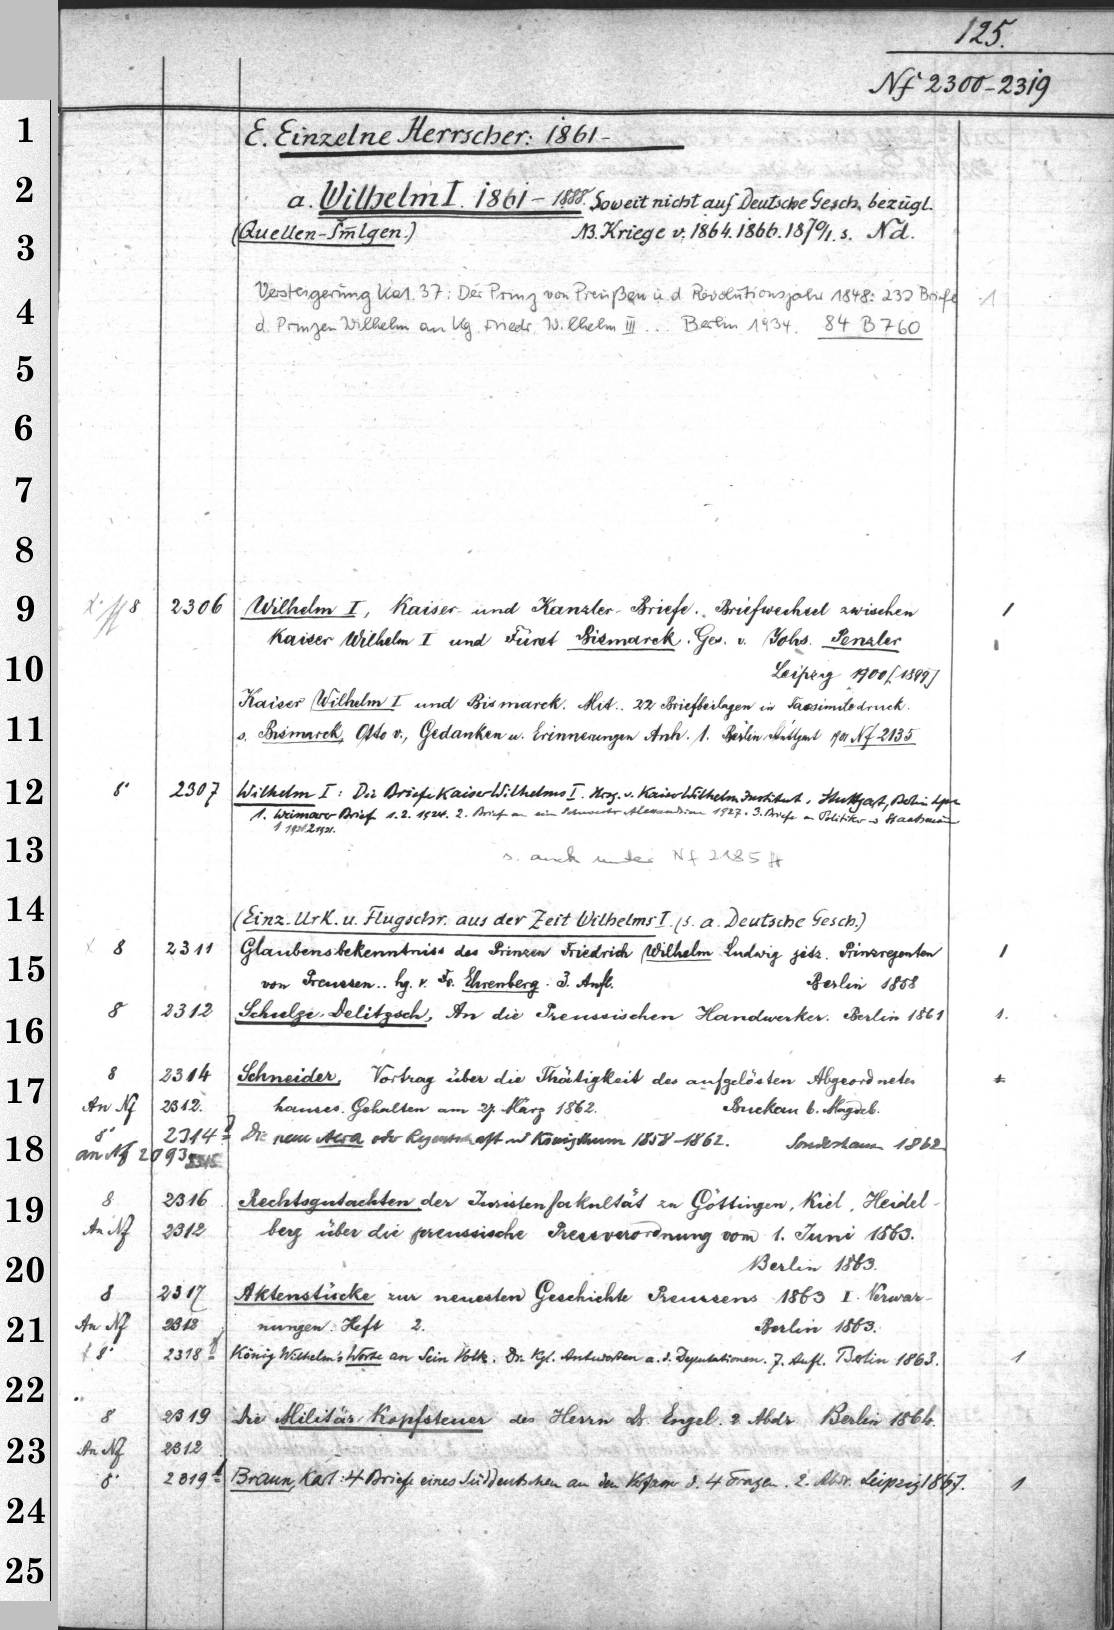 125.
Nf 2300-2319
1
E. Einzelne Herrscher: 1861-
2
a. Wilhelm I. 1861 - 1888. Soweit nicht auf Deutsche Gesch. bezügl.
3
(Quellen-Sm̅lgen.) NB. Kriege v. 1864. 1866. 1870/1. s. Nd.
4
Versteigerung Kat. 37: Der Prinz von Preußen u. d. Revolutionsjahr 1848: 232 Briefe 1
d. Prinzen Wilhelm an Kg. Friedr. Wilhelm III ... Berlin 1934. 84 B 760
5
6
7
8
9
8 2306 Wilhelm I, Kaiser- und Kanzler-Briefe. Briefwechsel zwischen 1
Kaiser Wilhelm I und Fürst Bismarck. Ges. v. Johs. Penzler 1
10
Leipzig 1900 [1899]
11
Kaiser Wilhelm I und Bismarck. Mit.. 22 Briefbeilagen in Facsimiledruck.
s. Bismarck, Otto v., Gedanken u. Erinnerungen Anh. 1. Berlin Stuttgart 1901 Nf 2135
12
8° 2307 Wilhelm I: Die Briefe Kaiser Wilhelms I. Hrsg. v. Kaiser Wilhelm Institut. Stuttgart, Berlin Lpz
1. Weimarer Briefe 1. 2. 1924. 2. Briefe an seine Schwester Alexandrine 1927. 3. Briefe an Politiker u. Staatsmänner
13
s. auch unter Nf 2185 ff
14
(Einz. Urk. u. Flugschr. aus der Zeit Wilhelms I. (s. a. Deutsche Gesch.)
15
8 2311 Glaubensbekenntniss des Prinzen Friedrich Wilhelm Ludwig jetz. Prinzregenten 1
von Preussen.. hg. v. Fr. Ehrenberg. 3. Aufl. Berlin 1858
16
8 2312 Schulze-Delitzsch, An die Preussischen Handwerker. Berlin 1861 1.
17
8 2314 Schneider, Vortrag über die Thätigkeit des aufgelösten Abgeordneten
An Nf 2312. hauses. Gehalten am 27. März 1862. Buckau b. Magdeb.
18
8° 2314 Die neue Aera oder Regentschaft und Königthum 1858-1862. Sondershausen 1862
an Nf 2093
19
8 2316 Rechtsgutachten der Juristenfakultät zu Göttingen, Kiel, Heidel-
An Nf 2312 berg über die preussische Pressverordnung vom 1. Juni 1863.
20
Berlin 1863.
8 2317 Aktenstücke zur neuesten Geschichte Preussens 1863 I. Verwar-
21
An Nf 2312 nungen. Heft 2. Berlin 1863.
8° 2318 König Wilhelm's Worte an Sein Volk. Die Kgl. Antworten a. d. Deputationen. 7. Aufl. Berlin 1863. 1
22
8 2319 Die Militär-Kopfsteuer des Herrn Dr. Engel. 2. Abdr. Berlin 1864.
23
An Nf 2312
8° 2319 Braun, Karl: 4 Briefe eines Süddeutschen an den Verfasser d. 4 Fragen. 2. Abdr. Leipzig 1867. 1
24
25